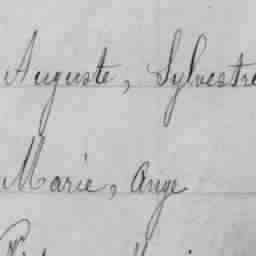 Auguste, Sylvestre
Marie, Ange